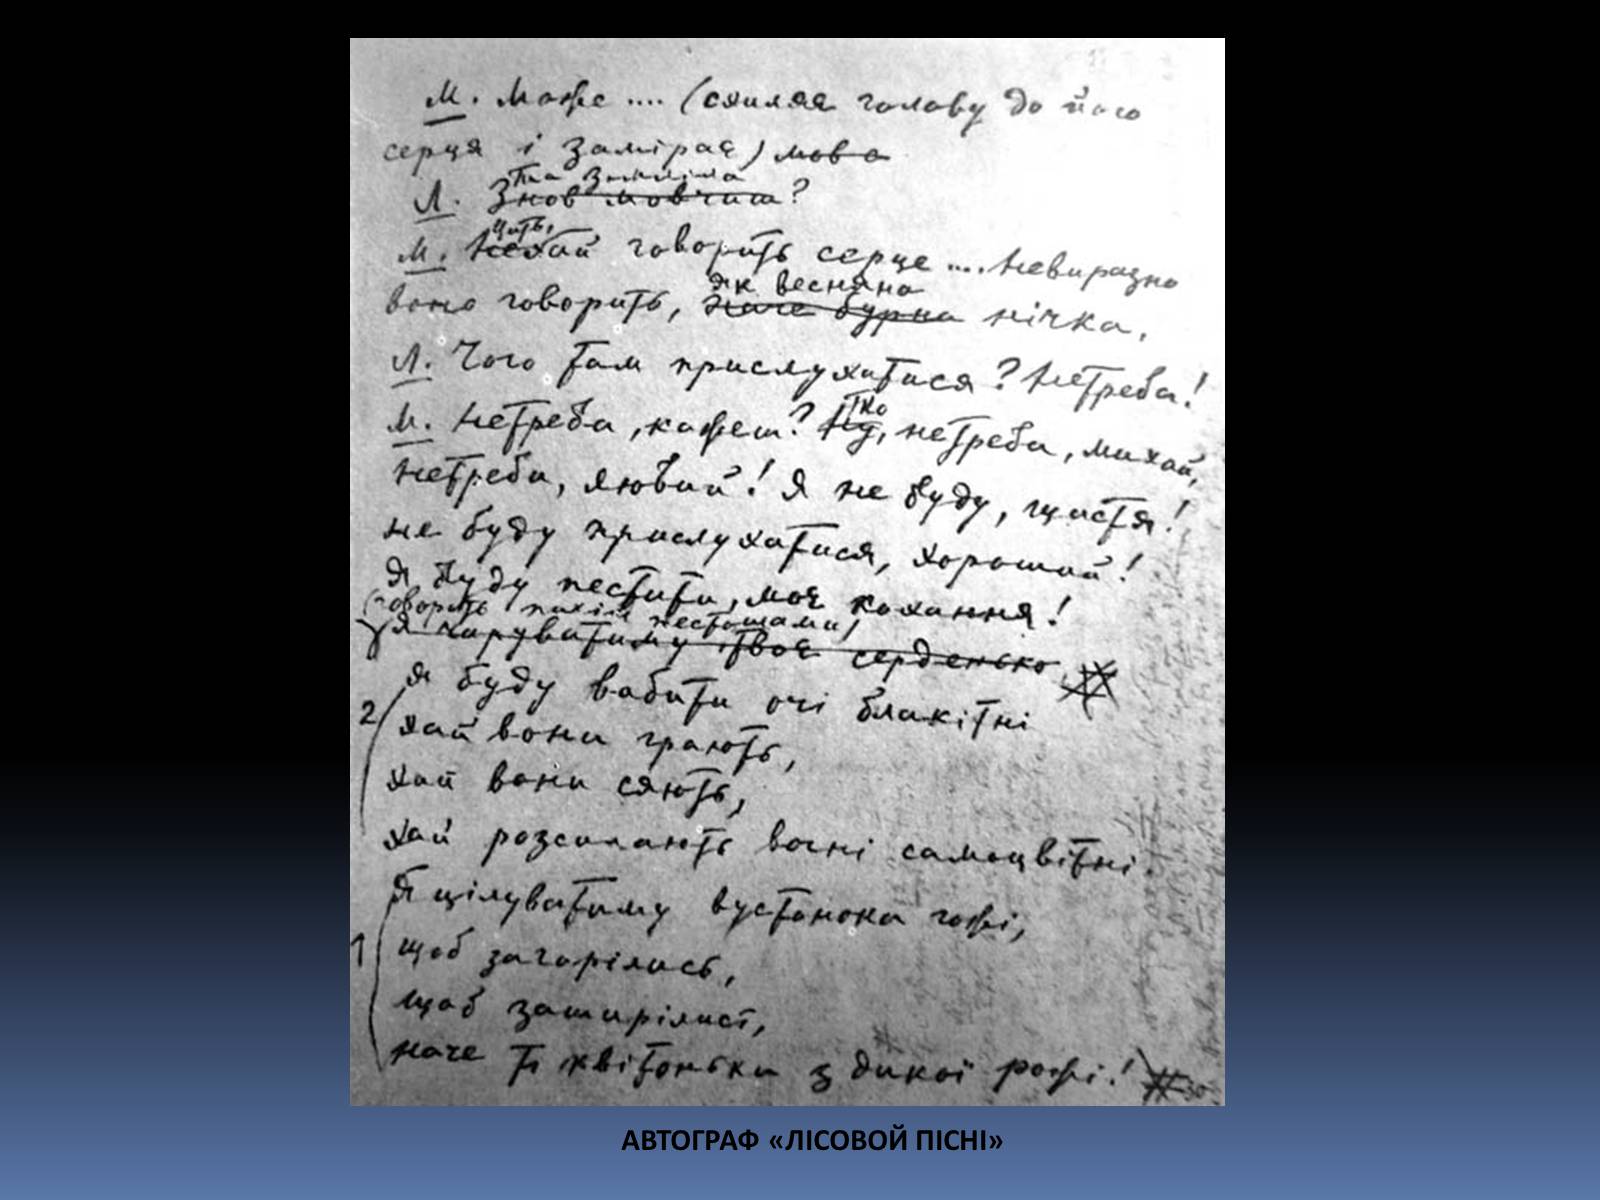 М. Може .... (схиляя голову до його
серця і заміряє) мова
та заніміла
Л. Знов мовчиш?
Цить,
М. Нехай говорить серце .... Невиразно
як весняна
воно говорить, наче бурна нічка.
Л. Чого там прислухатися? Не треба!
тко
М. Не треба, кажеш? Ну, не треба, милий,
не треба, любий! Я не буду, щастя!
не буду прислухатися, хороший!
Я буду пестити, моє кохання!
(говорить тихім пестощами)
Я чаруватиму твоє серденько
Я буду вабити очі блакітні
2 хай вони грають,
хай вони сяють,
хай розсипають вогні самоцвітні.
Я цілуватиму вустонока гожі,
1 щоб загорілись,
щоб зашарілись,
наче ті квітоньки з дикої рожі!
АВТОГРАФ «ЛІСОВОЙ ПІСНІ»